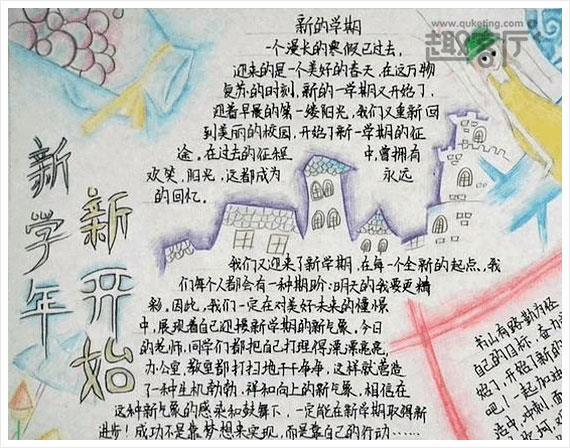 www.quketing.com
趣客厅
新学年
新开始
新的学期
一个漫长的寒假已过去,
迎来的是一个美好的春天,在这万物
复苏的时刻,新的一学期又开始了,
迎着早晨的第一缕阳光,我们又重新回
到美丽的校园,开始了新一学期的征
途。在过去的征程中,曾拥有
欢笑,阳光,这都成为永远
的回忆。
我们又迎来了新学期,在每一个全新的起点,我
们每个人都会有一种期盼:明天的我要更精
彩。因此,我们一定在对美好未来的憧憬
中,展现着自己迎接新学期的新气象,今日
的老师,同学们都把自己打理得漂漂亮亮,
办公室,教室都打扫地干干净净,这样就营造
了一种生机勃勃,祥和向上的新气象,相信在
这种新气象的感染和鼓舞下,一定能在新学期取得新
进步!成功不是靠梦想来实现,而是靠自己的行动……
书山有路勤为径
自己的目标,奋力
始了,开始了新的
吧!一起加油